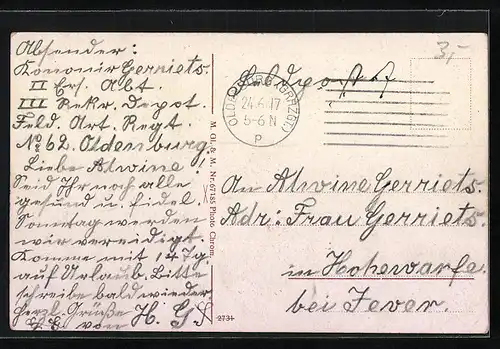 Absender:
Kanonir Gerriets.
II Ers. Abt.
III Rekr. Depot.
Feld. Art. Regt.
No 62. Oldenburg.
Liebe Alwine!
Seid Ihr noch alle
gesund u. fidel.
Sonntag werden
wir vereidigt.
Komme mit 14 Tg.
auf Urlaub. Bitte
schreibe bald wieder
Herzl. Grüße
von H. G.
M. Gl. & M. Nr. 67185 Photo Chrom.
2731
3,-
Feldpost
OLDENBURG (GRHZGT.)
24.6.17
5-6 N
P
An Alwine Gerriets.
Adr: Frau Gerriets.
in Hohewarfe
bei Jever.